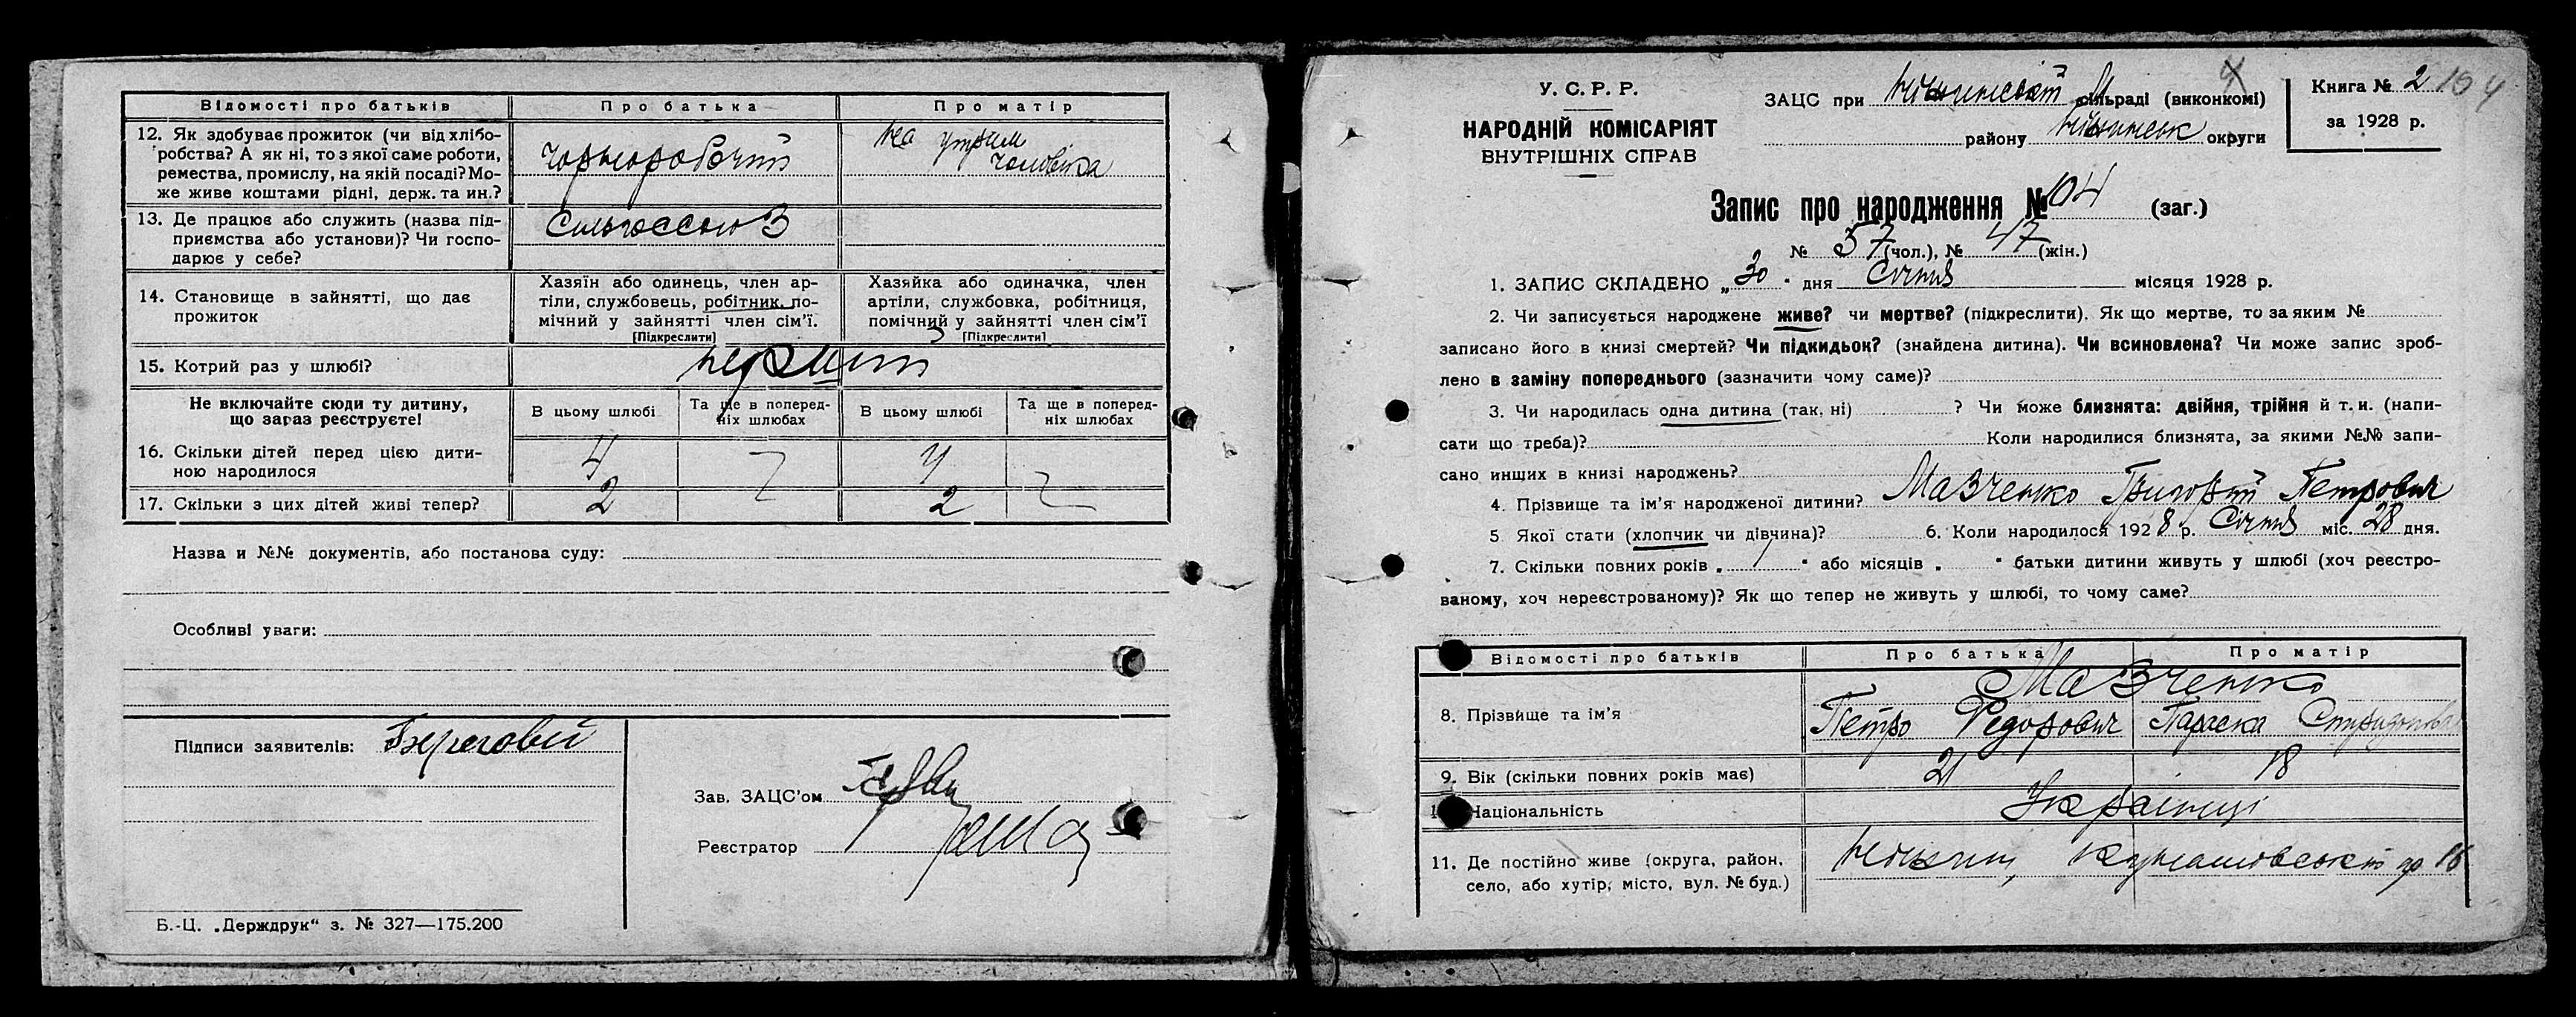 Відомості про батьків
Про батька
Про матір
12. Як здобуває прожиток (чи від хлібо-
робства? А як ні, то з якої саме роботи,
ремества, промислу, на якій посаді? Мо-
же живе коштами рідні, держ. та ин.?
чорноробочий
на утрим
чоловіка
13. Де працює або служить (назва під-
приємства або установи)? Чи госпо-
дарює у себе?
14. Становище в зайнятті, що дає
прожиток
Хазяїн або одинець, член ар-
тіли, службовець, робітник, по-
мічний у зайнятті член сім'ї.
[Підкреслити]
Хазяйка або одиначка, член
артіли, службовка, робітниця,
помічний у зайнятті член сім'ї
[Підкреслити]
15. Котрий раз у шлюбі?
перший
Не включайте сюди ту дитину,
що загаз реєструєте!
В цьому шлюбі
Та ще в поперед-
ніх шлюбах
В цьому шлюбі
Та ще в поперед-
ніх шлюбах
16. Скільки дітей перед цією дити-
ною народилося
4
4
17. Скільки з цих дітей живі тепер?
2
2
Назва и №№ документів, або постанова суду:
Особливі уваги:
Підписи заявителів: Береговий
Зав. ЗАЦС'ом
Реєстратор
Б.-Ц. „Держдрук“ з. № 327—175.200
У. С. Р. Р.
НАРОДНІЙ КОМІСАРІЯТ
ВНУТРІШНІХ СПРАВ
ЗАЦС при Ніжинській сільраді (виконкомі)
району Ніжинськ округи
Книга № 2 104
за 1928 р.
Запис про народження № 104 (заг.)
№ 57 (чол.), № 47 (жін.)
1. ЗАПИС СКЛАДЕНО „30“ дня Січня місяця 1928 р.
2. Чи записується народжене живе? чи мертве? (підкреслити). Як що мертве, то за яким №
записано його в книзі смертей? Чи підкидьок? (знайдена дитина). Чи всиновлена? Чи може запис зроб-
лено в заміну попереднього (зазначити чому саме)?
3. Чи народилась одна дитина (так, ні) ? Чи може близнята: двійня, трійня й т. и. (напи-
сати що треба)? Коли народилися близнята, за якими №№ запи-
сано инших в книзі народжень?
4. Прізвище та ім'я народженої дитини? Мазченко Григорій Петрович
5 Якої стати (хлопчик чи дівчина)? 6. Коли народилося 1928 р. Січня міс. 28 дня.
7. Скільки повних років „ 1 “ або місяців „ “ батьки дитини живуть у шлюбі (хоч реєстро-
ваному, хоч нереєстрованому)? Як що тепер не живуть у шлюбі, то чому саме?
Відомості про батьків
Про батька
Про матір
8. Прізвище та ім'я
Мазченко
Петро Федорович
Параска Спиридоновн
9. Вік (скільки повних років має)
21
18
Національність
Українці
11. Де постійно живе (округа, район,
село, або хутір, місто, вул. № буд.)
Ніжин, 16